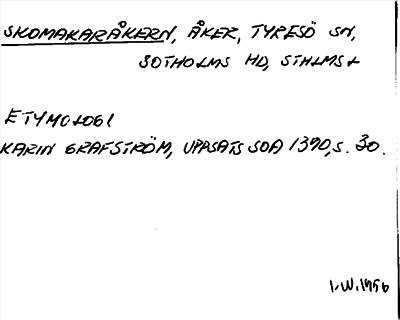 SKOMAKARÅKERN, ÅKER, TYRESÖ SN,
SOTHOLMS HD, STHLMS L
ETYMOLOGI
KARIN GRAFSTRÖM, UPPSATS SOA 1390, S. 30.
I.W. 1956